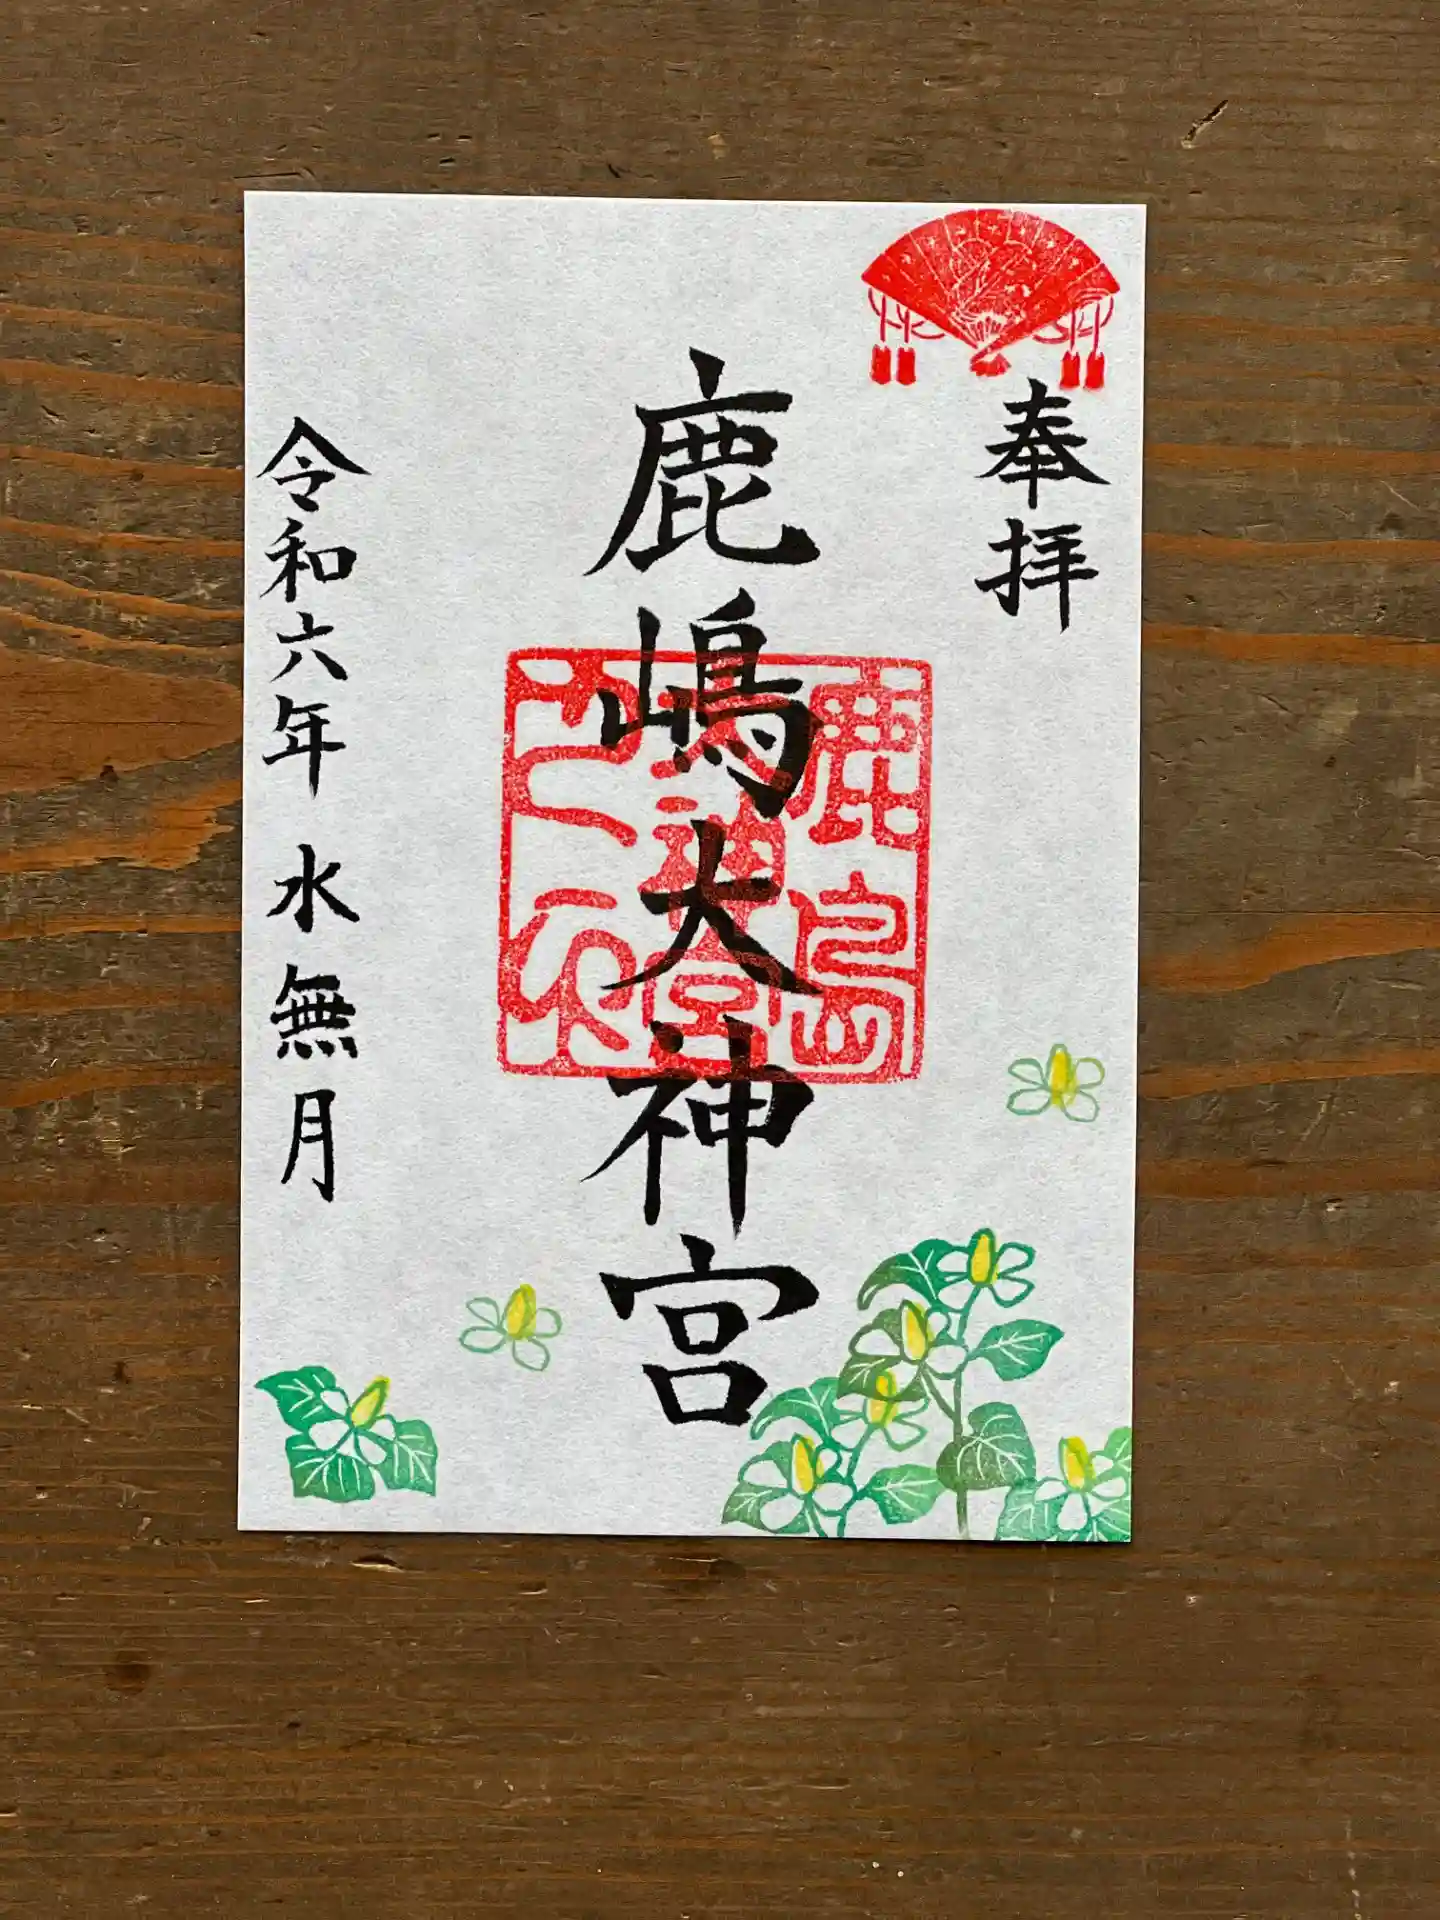 奉拝
鹿嶋大神宮
鹿島
大神宮
之印
令和六年 水無月